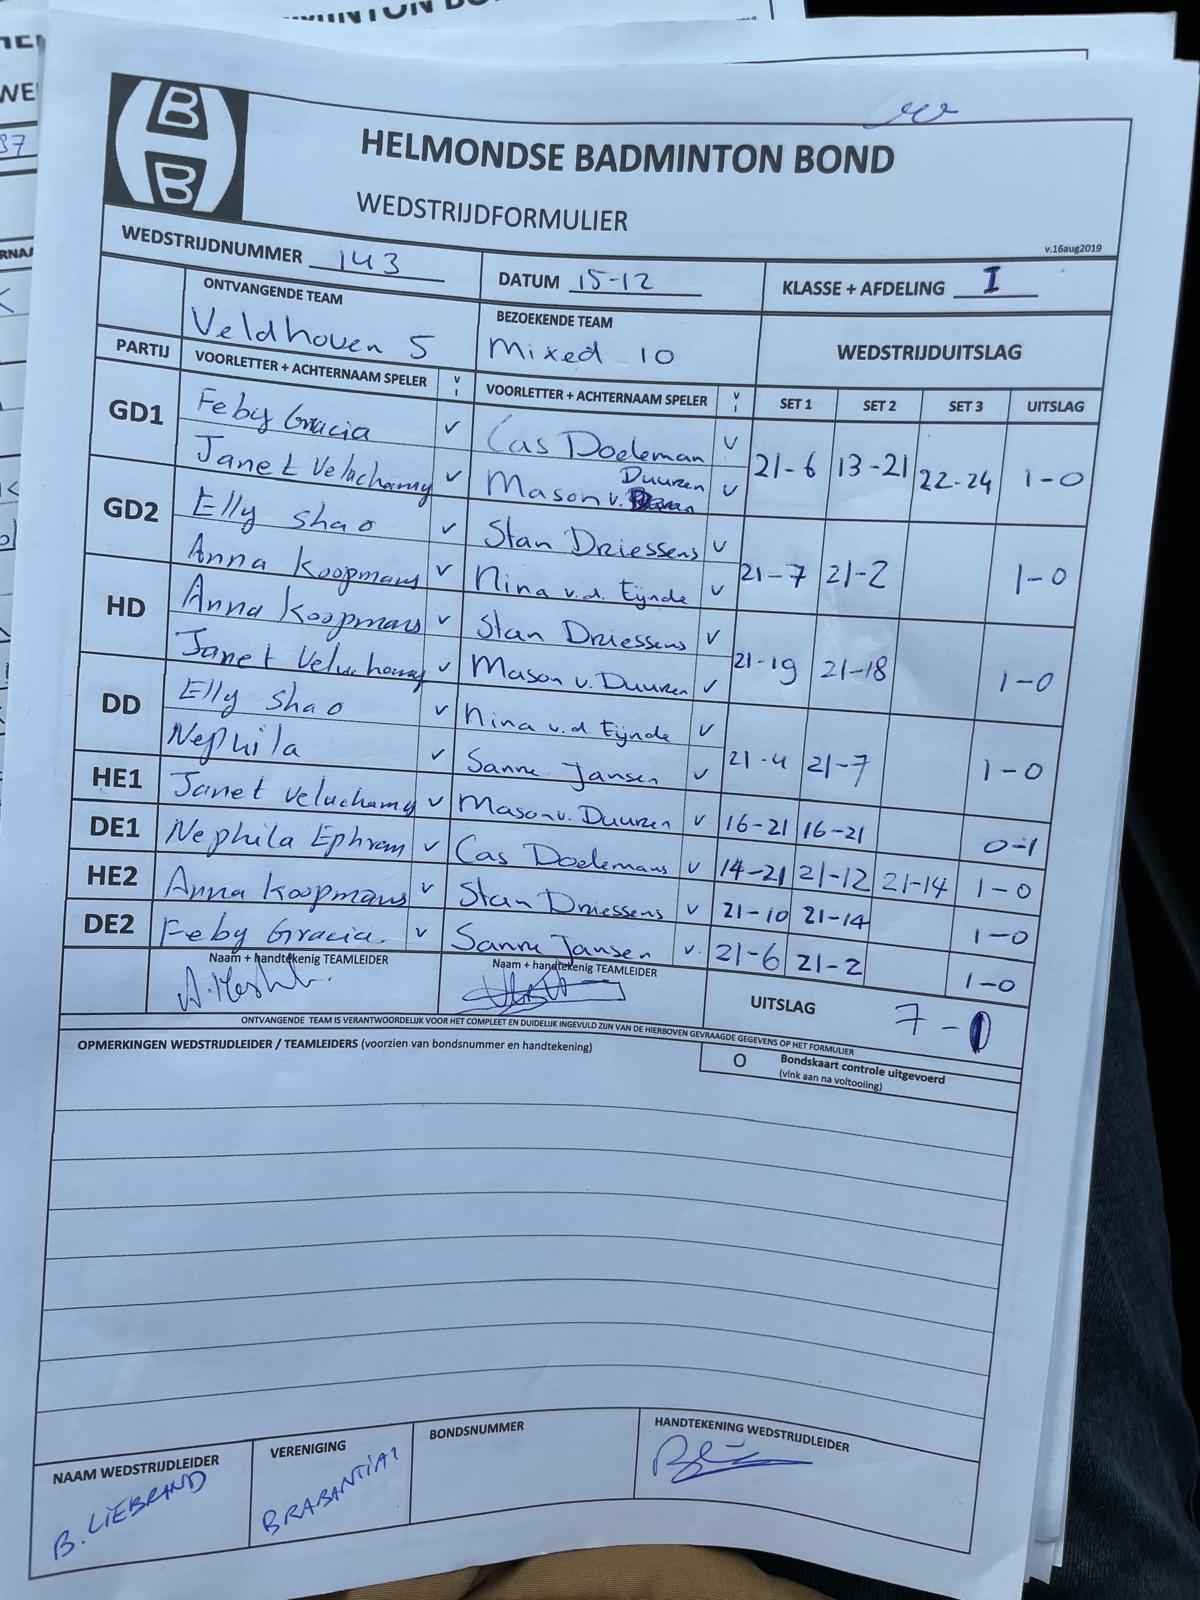 HELMONDSE BADMINTON BOND
WEDSTRIJDFORMULIER
v.16aug2019
WEDSTRIJDNUMMER 143 DATUM 15-12 KLASSE + AFDELING I
ONTVANGENDE TEAM BEZOEKENDE TEAM WEDSTRIJDUITSLAG
Veldhoven 5 Mixed 10
PARTIJ VOORLETTER + ACHTERNAAM SPELER V I VOORLETTER + ACHTERNAAM SPELER V I SET 1 SET 2 SET 3 UITSLAG
GD1 Feby Gracia v Cas Doeleman v 21-6 13-21 22-24 1-0
Janet Veluchamy v Mason v. Duuren v
GD2 Elly Shao v Stan Driessens v 21-7 21-2 1-0
Anna Koopmans v Nina v.d. Eijnde v
HD Anna Koopmans v Stan Driessens v 21-19 21-18 1-0
Janet Veluchamy v Mason v. Duuren v
DD Elly Shao v Nina v.d. Eijnde v 21-4 21-7 1-0
Nephila v Sanne Jansen v
HE1 Janet Veluchamy v Mason v. Duuren v 16-21 16-21 0-1
DE1 Nephila Ephram v Cas Doelemans v 14-21 21-12 21-14 1-0
HE2 Anna Koopmans v Stan Driessens v 21-10 21-14 1-0
DE2 Feby Gracia. v Sanne Jansen v. 21-6 21-2 1-0
Naam + handtekenig TEAMLEIDER Naam + handtekenig TEAMLEIDER UITSLAG 7-1
ONTVANGENDE TEAM IS VERANTWOORDELIJK VOOR HET COMPLEET EN DUIDELIJK INGEVULD ZIJN VAN DE HIERBOVEN GEVRAAGDE GEGEVENS OP HET FORMULIER
OPMERKINGEN WEDSTRIJDLEIDER / TEAMLEIDERS (voorzien van bondsnummer en handtekening)
O Bondskaart controle uitgevoerd
(vink aan na voltooiing)
NAAM WEDSTRIJDLEIDER VERENIGING BONDSNUMMER HANDTEKENING WEDSTRIJDLEIDER
B. LIEBRAND BRABANTIA